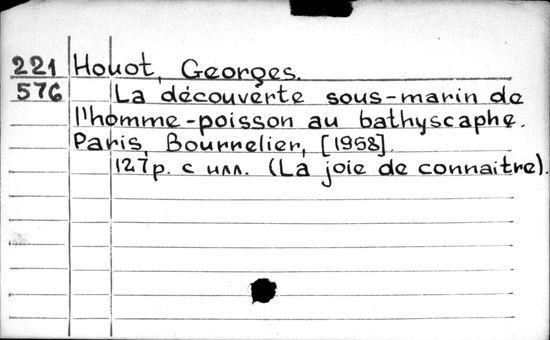 221 Houot, Georges.
576 La découverte sous-marin de
l'homme-poisson au bathyscaphe.
Paris, Bournelier, [1958].
127p. с илл. (La joie de connaitre).